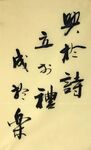 興於詩
立於禮
成於樂